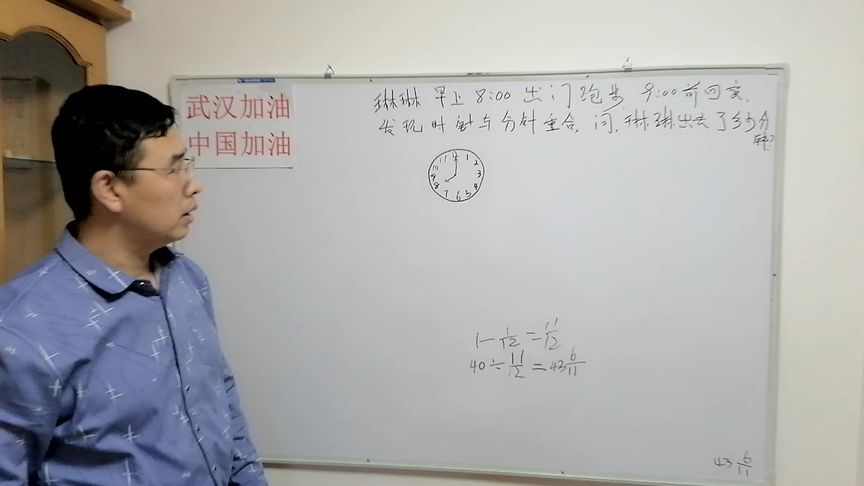 武汉加油
中国加油
琳琳早上8:00出门跑步,9:00前回家,
发现时针与分针重合,问,琳琳出去了多少分
钟?
12 1 2 3 4 5 6 7 8 9 10 11
1-1/12=11/12
40÷11/12=43 6/11
43 6/11